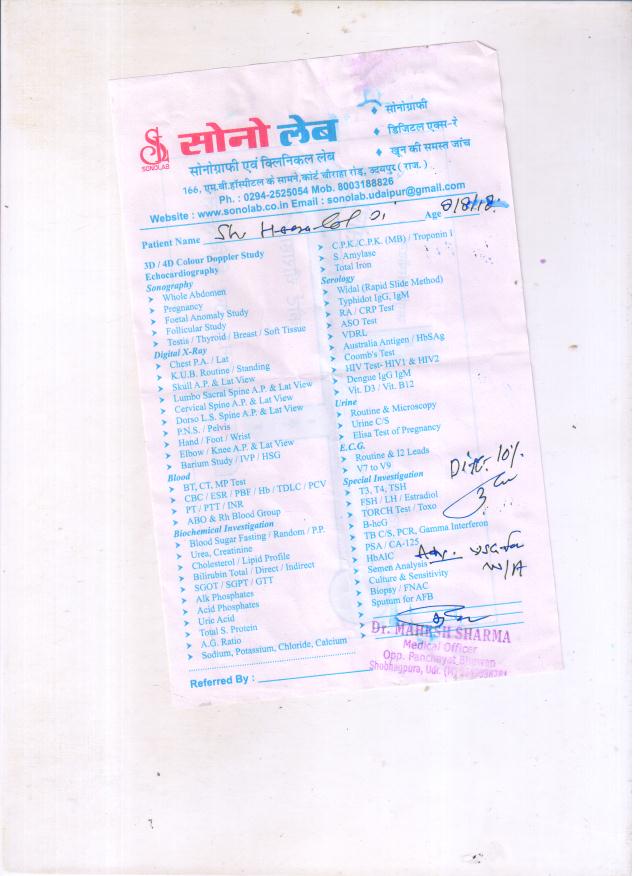 SL
SONOLAB
सोनो लेब
सोनोग्राफी एवं क्लिनिकल लेब
♦ सोनोग्राफी
♦ डिजिटल एक्स-रे
♦ खून की समस्त जांच
166, एम.बी.हॉस्पीटल के सामने, कोर्ट चौराहा रोड़, उदयपुर ( राज. )
Ph. : 0294-2525054 Mob. 8003188826
Website : www.sonolab.co.in Email : sonolab.udaipur@gmail.com
Patient Name Sh Age 8/8/18
3D / 4D Colour Doppler Study
Echocardiography
Sonography
➤ Whole Abdomen
➤ Pregnancy
➤ Foetal Anomaly Study
➤ Follicular Study
➤ Testis / Thyroid / Breast / Soft Tissue
Digital X-Ray
➤ Chest P.A. / Lat
➤ K.U.B. Routine / Standing
➤ Skull A.P. & Lat View
➤ Lumbo Sacral Spine A.P. & Lat View
➤ Cervical Spine A.P. & Lat View
➤ Dorso L.S. Spine A.P. & Lat View
➤ P.N.S. / Pelvis
➤ Hand / Foot / Wrist
➤ Elbow / Knee A.P. & Lat View
➤ Barium Study / IVP / HSG
Blood
➤ BT, CT, MP Test
➤ CBC / ESR / PBF / Hb / TDLC / PCV
➤ PT / PTT / INR
➤ ABO & Rh Blood Group
Biochemical Investigation
➤ Blood Sugar Fasting / Random / P.P.
➤ Urea, Creatinine
➤ Cholesterol / Lipid Profile
➤ Bilirubin Total / Direct / Indirect
➤ SGOT / SGPT / GTT
➤ Alk Phosphates
➤ Acid Phosphates
➤ Uric Acid
➤ Total S. Protein
➤ A.G. Ratio
➤ Sodium, Potassium, Chloride, Calcium
➤ C.P.K./C.P.K. (MB) / Troponin I
➤ S. Amylase
➤ Total Iron
Serology
➤ Widal (Rapid Slide Method)
➤ Typhidot IgG, IgM
➤ RA / CRP Test
➤ ASO Test
➤ VDRL
➤ Australia Antigen / HbSAg
➤ Coomb's Test
➤ HIV Test- HIV1 & HIV2
➤ Dengue IgG IgM
➤ Vit. D3 / Vit. B12
Urine
➤ Routine & Microscopy
➤ Urine C/S
➤ Elisa Test of Pregnancy
E.C.G.
➤ Routine & 12 Leads
➤ V7 to V9
Special Investigation
➤ T3, T4, TSH
➤ FSH / LH / Estradiol
➤ TORCH Test / Toxo
➤ B-hcG
➤ TB C/S, PCR, Gamma Interferon
➤ PSA / CA-125
➤ HbAIC
➤ Semen Analysis
➤ Culture & Sensitivity
➤ Biopsy / FNAC
➤ Sputum for AFB
10%.
Adv. USG for
W/A
Dr. MAHESH SHARMA
Medical Officer
Opp. Panchayat Bhawan
Shobhagpura, Udr.
Referred By :